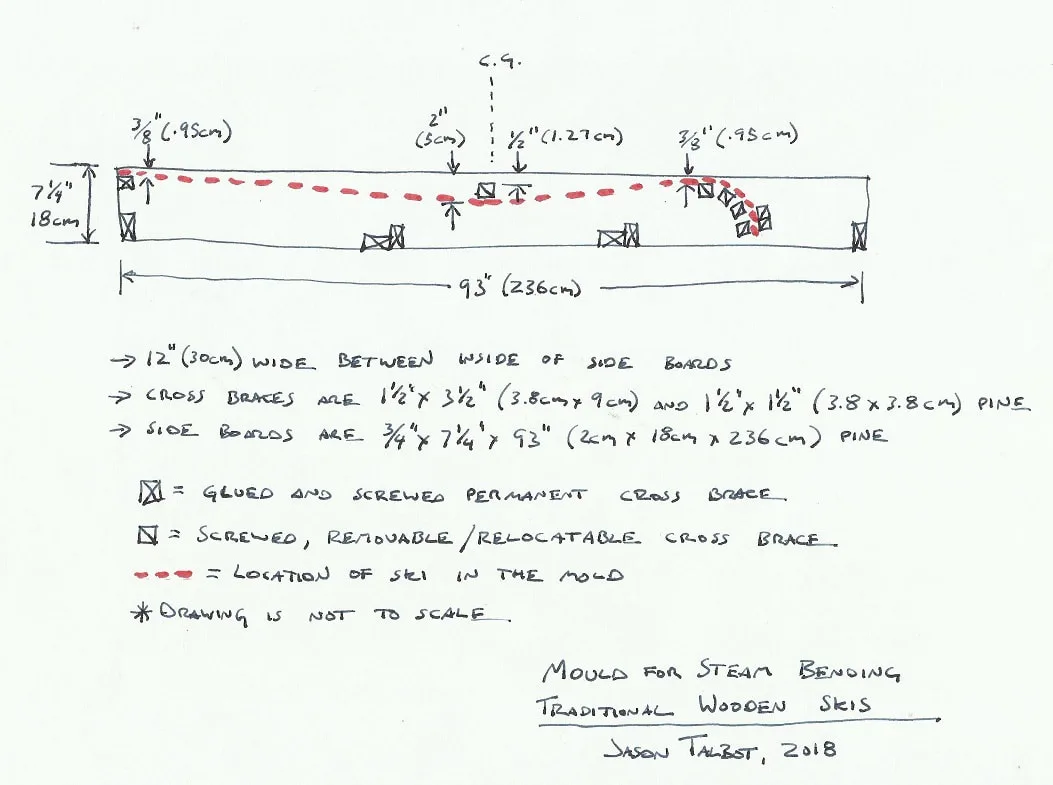 C.G.
3/8" (.95cm)
2"
(5cm)
1/2" (1.27cm)
3/8" (.95cm)
7 1/4"
18cm
93" (236cm)
→ 12" (30cm) WIDE BETWEEN INSIDE OF SIDE BOARDS
→ CROSS BRACES ARE 1 1/2" x 3 1/2" (3.8cm x 9cm) AND 1 1/2" x 1 1/2" (3.8 x 3.8cm) PINE
→ SIDE BOARDS ARE 3/4" x 7 1/4" x 93" (2cm x 18cm x 236cm) PINE
= GLUED AND SCREWED PERMANENT CROSS BRACE.
= SCREWED, REMOVABLE/RELOCATABLE CROSS BRACE.
= LOCATION OF SKI IN THE MOLD
* DRAWING IS NOT TO SCALE.
MOULD FOR STEAM BENDING
TRADITIONAL WOODEN SKIS
JASON TALBOT, 2018